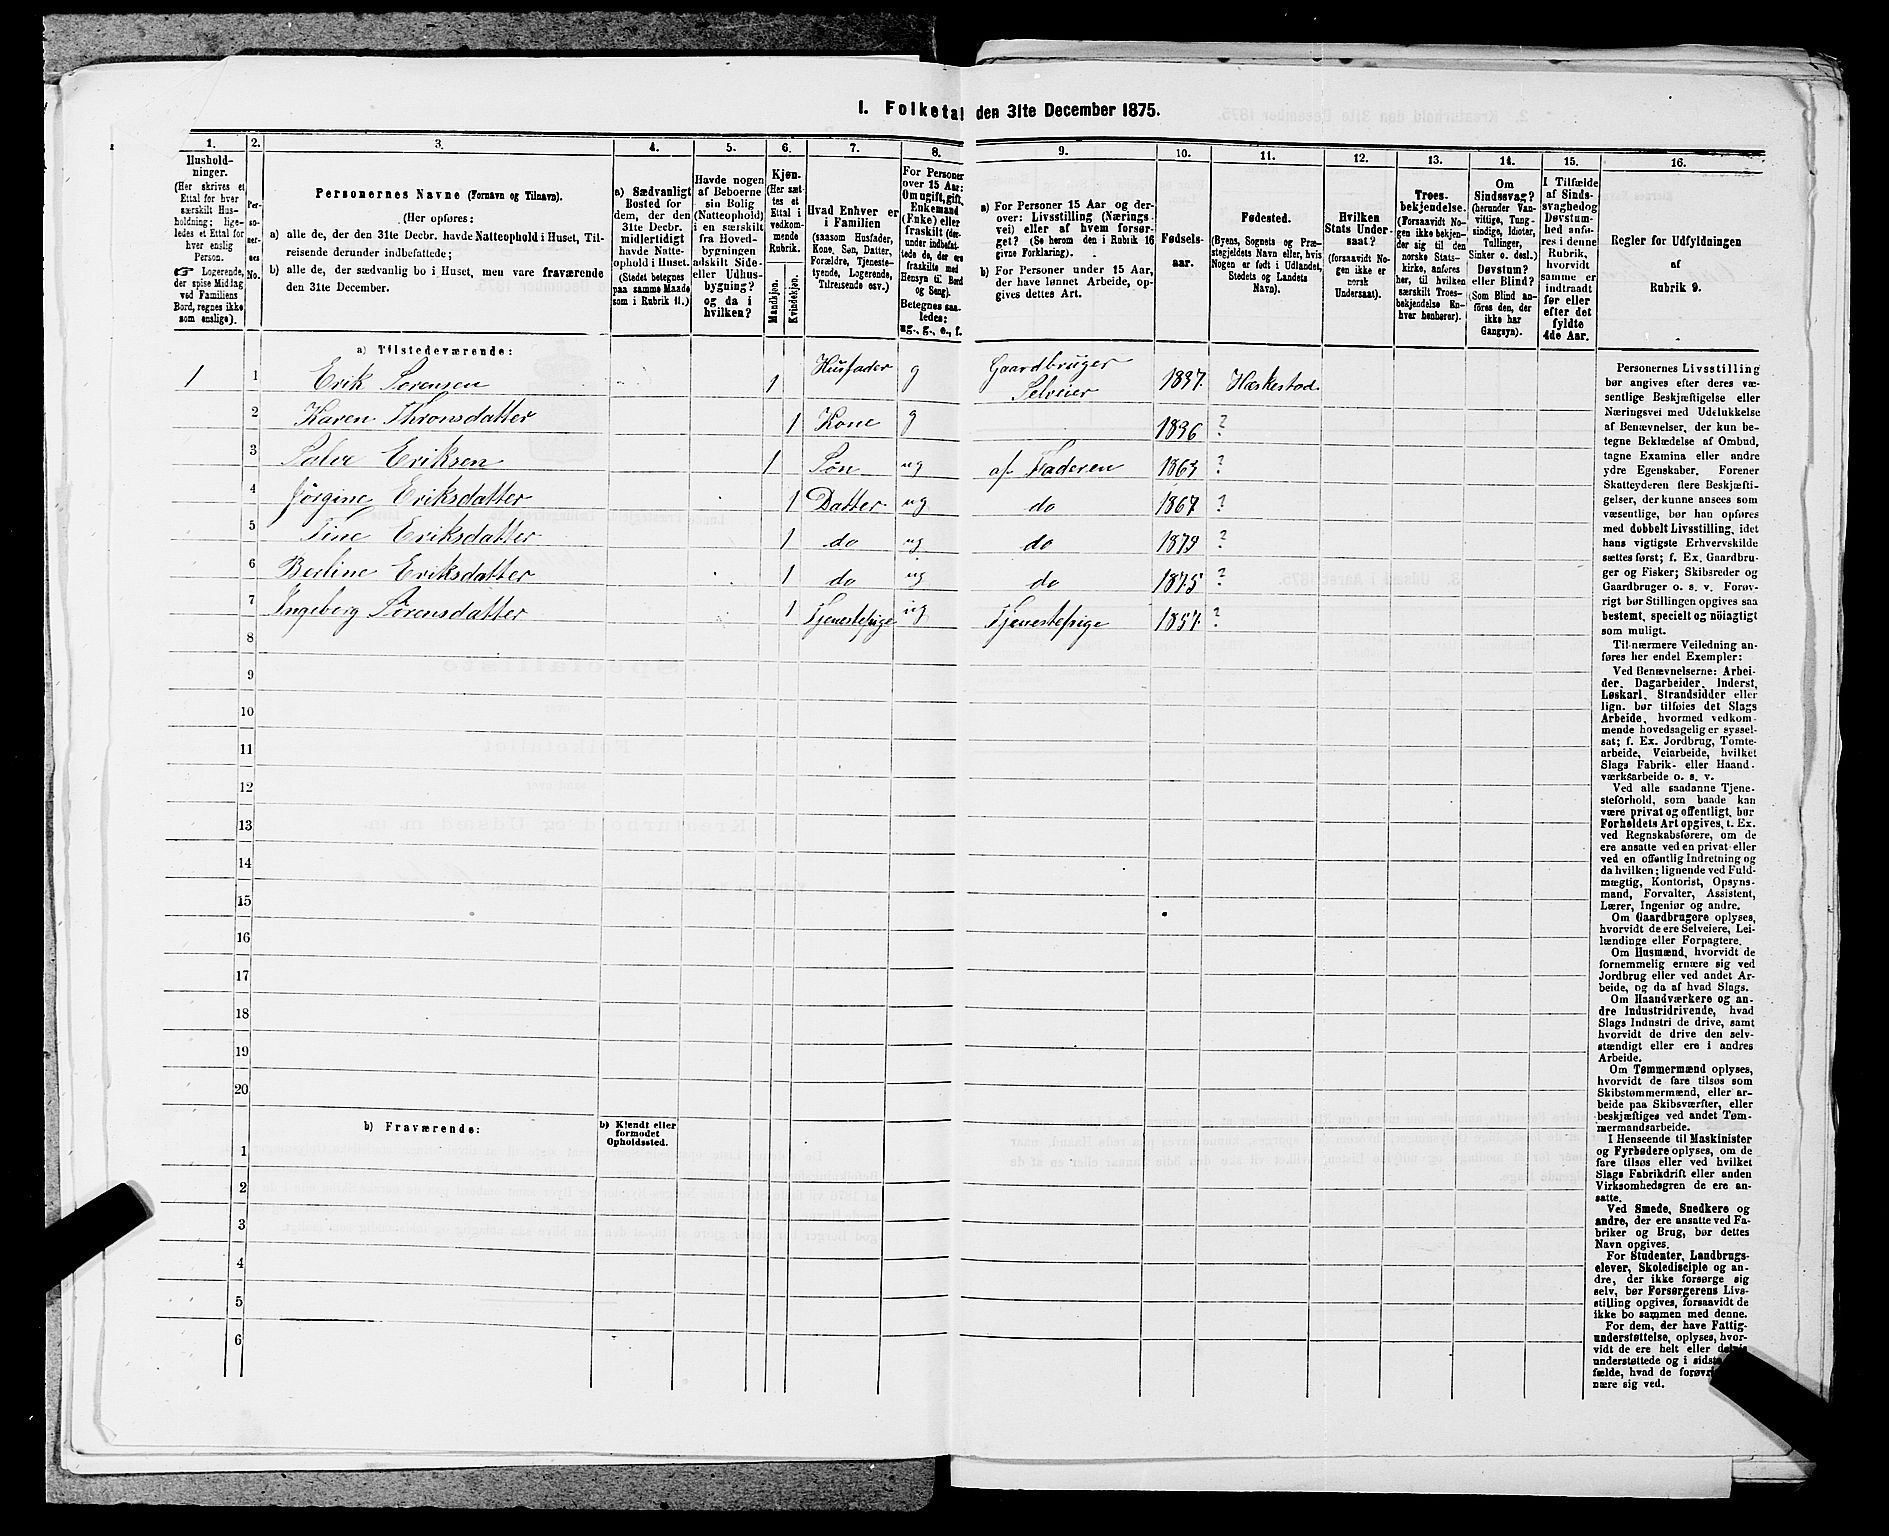 I. Folketal den 31te December 1875.
1.
2.
3.
4.
5.
6.
7.
8.
9.
10.
11.
12.
13.
14.
15.
16.
Hushold-
ninger.
(Her skrives et
Ettal for hver
særskilt Hus-
holdning; lige-
ledes et Ettal for
hver enslig
Person.
☞ Logerende,
der spise Middag
ved Familiens
Bord, regnes ikke
som enslige).
Per-
so-
ner-
nes
No.
Personernes Navne (Fornavn og Tilnavn).
(Her opføres:
a) alle de, der den 31te Decbr. havde Natteophold i Huset, Til-
reisende derunder indbefattede;
b) alle de, der sædvanlig bo i Huset, men vare fraværende
den 31te December.
a) Sædvanligt
Bosted for
dem, der den
31te Decbr.
midlertidigt
havde Natte-
ophold i Huset.
(Stedet betegnes
paa samme Maade
som i Rubrik 11.)
Havde nogen
af Beboerne
sin Bolig
(Natteophold)
i en særskilt
fra Hoved-
bygningen
adskilt Side-
eller Udhus-
bygning?
og da i
hvilken?
Kjøn.
(Her sæt-
tes et
Ettal i
vedkom-
mende
Rubrik.
Mandkjøn.
Kvindekjøn.
Hvad Enhver er
i Familien
(saasom Husfader,
Kone, Søn, Datter,
Forældre, Tjeneste-
tyende, Logerende,
Tilreisende osv.)
For Personer
over 15 Aar:
Om ugift, gift,
Enkemand
(Enke) eller
fraskilt (der-
under indbefat-
tede de, der ere
fraskilte med
Hensyn til Bord
og Seng).
Betegnes saa-
ledes:
ug., g., e., f.
a) For Personer 15 Aar og der-
over: Livsstilling (Nærings-
vei) eller af hvem forsør-
get? (Se herom den i Rubrik 16
givne Forklaring).
b) For Personer under 15 Aar,
der have lønnet Arbeide, op-
gives dettes Art.
Fødsels-
aar.
Fødested.
(Byens, Sognets og Præ-
stegjeldets Navn eller, hvis
Nogen er født i Udlandet,
Stedets og Landets
Navn).
Hvilken
Stats Under-
saat?
(forsaavidt No-
gen ikke er
norsk
Undersaat).
Troes-
bekjendelse.
(Forsaavidt No-
gen ikke bekjen-
der sig til den
norske Stats-
kirke, anføres
her, til hvilken
særskilt Troes-
bekjendelse En-
hver henhører).
Om
Sindssvag?
(herunder Van-
vittige, Tung-
sindige, Idioter,
Tullinger,
Sinker o. desl.).
Døvstum?
eller Blind?
(Som Blind an-
føres den, der
ikke har
Gangsyn).
I Tilfælde
af Sinds-
svaghed og
Døvstum-
hed anfø-
res i denne
Rubrik,
hvorvidt
samme er
indtraadt
før eller
efter det
fyldte
4de Aar.
Regler for Udfyldningen
af
Rubrik 9.
a) Tilstedeværende:
1 1 Erik Sørensen 1 Husfader g Gaardbruger Selveier 1837. Hæskestad
2 Karen Thronsdatter 1 Kone g 1836 ?
3 Salve Eriksen 1 Søn ug af Faderen 1863 ?
4 Jørgine Eriksdatter 1 Datter ug do 1867 ?
5 Tine Eriksdatter 1 do ug do 1873 ?
6 Berline Eriksdatter 1 do ug do 1875 ?
7 Ingeborg Sørensdatter 1 Tjenestepige ug Tjenestepige 1857. ?
8
9
10
11
12
13
14
15
16
17
18
19
20
b) Fraværende:
b) Kjendt eller
formodet
Opholdssted.
1
2
3
4
5
6
Personernes Livsstilling
bør angives efter deres væ-
sentlige Beskjæftigelse eller
Næringsvei med Udelukkelse
af Benævnelser, der kun be-
tegne Beklædelse af Ombud,
tagne Examina eller andre
ydre Egenskaber. Forener
Skatteyderen flere Beskjæfti-
gelser, der kunne ansees som
væsentlige, bør han opføres
med dobbelt Livsstilling, idet
hans vigtigste Erhvervskilde
sættes først; f. Ex. Gaardbru-
ger og Fisker; Skibsreder og
Gaardbruger o. s. v. Forøv-
rigt bør Stillingen opgives saa
bestemt, specielt og nöiagtigt
som muligt.
Til nærmere Veiledning an-
føres her endel Exempler:
Ved Benævnelserne: Arbei-
der, Dagarbeider, Inderst,
Løskarl, Strandsidder eller
lign. bør tilføies det Slags
Arbeide, hvormed vedkom-
mende hovedsagelig er syssel-
sat; f. Ex. Jordbrug, Tomte-
arbeide, Veiarbeide, hvilket
Slags Fabrik- eller Haand
værksarbeide o. s. v.
Ved alle saadanne Tjene-
steforhold, som baade kan
være privat og offentligt, bør
Forholdets Art opgives, t. Ex.
ved Regnskabsførere, om de
ere ansatte ved en privat eller
ved en offentlig Indretning og
da hvilken; lignende ved Fuld-
mægtig, Kontorist, Opsyns-
mand, Forvalter, Assistent,
Lærer, Ingeniør og andre.
Om Gaardbrugere oplyses,
hvorvidt de ere Selveiere, Lei-
lændinge eller Forpagtere.
Om Husmænd, hvorvidt de
fornemmelig ernære sig ved
Jordbrug eller ved andet Ar-
beide, og da af hvad Slags.
Om Haandværkere og an-
dre Industridrivende, hvad
Slags Industri de drive, samt
hvorvidt de drive den selv-
stændigt eller ere i andres
Arbeide.
Om Tømmermænd oplyses,
hvorvidt de fare tilsøs som
Skibstømmermænd, eller ar-
beide paa Skibsværfter, eller
beskjæftiges ved andet Tøm-
mermandsarbeide.
I Henseende til Maskinister
og Fyrbødere oplyses, om de
fare tilsøs eller ved hvilket
Slags Fabrikdrift eller anden
Virksomhedsgren de ere an-
satte.
Ved Smede, Snedkere og
andre, der ere ansatte ved Fa-
briker og Brug, bør dettes
Navn opgives.
For Studenter, Landbrugs-
elever, Skoledisciple og an-
dre, der ikke forsørge sig
selv, bør Forsørgerens Livs-
stilling opgives, forsaavidt de
ikke bo sammen med denne.
For dem, der have Fattig-
understøttelse, oplyses, hvor-
vidt de ere helt eller delvis
understøttede og i sidste
fælde, hvad de forøvr
nære sig ved.